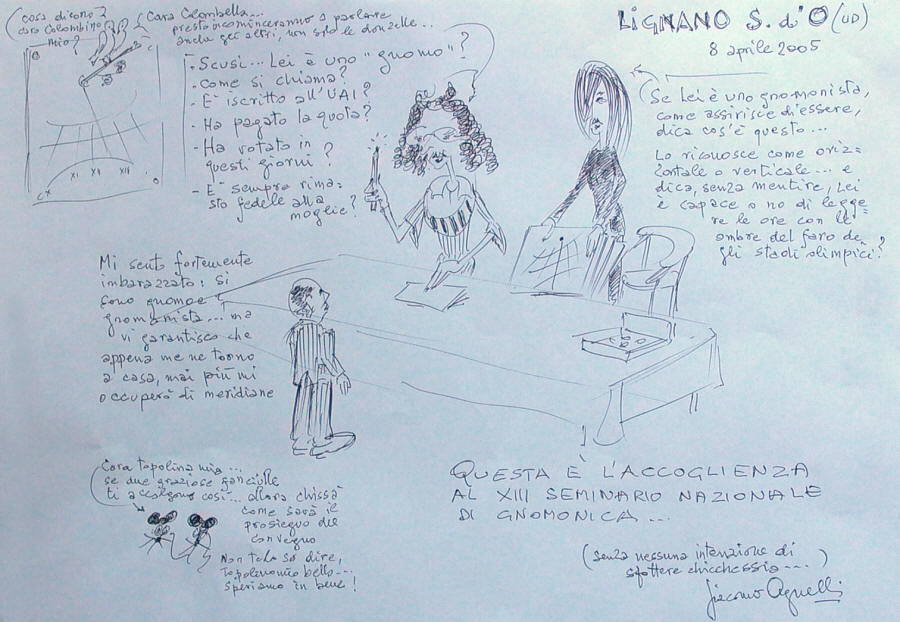 LIGNANO S. d'O (UD)
8 aprile 2005
(cosa dicono?
cara Colombino
mio?)
Cara Colombella...
presto incominceranno a parlare
anche gli altri, non solo le donzelle...
XI XII
- Scusi... Lei è uno "gnomo"?
- Come si chiama?
- E' iscritto all'UAI?
- Ha pagato la quota?
- Ha votato in
questi giorni?
- E' sempre rima=
sto fedele alla
moglie?
Se Lei è uno gnomonista,
come assirisce d'essere,
dica cos'è questo...
Lo riconosce come oriz=
zontale o verticale... e
dica, senza mentire, Lei
è capace o no di legge=
re le ore con le
ombre del faro de=
gli stadi olimpici?
Mi sento fortemente
imbarazzato: si
sono gnomo e
gnomonista... ma
vi garantisco che
appena me ne torno
a casa, mai più mi
occuperò di meridiane
Cara topolina mia...
se due graziose fanciulle
ti accolgono così... allora chissà
come sarà il
prosieguo del
convegno
Non te lo so dire,
topolinomio bello...
speriamo in bene!
QUESTA È L'ACCOGLIENZA
AL XIII SEMINARIO NAZIONALE
DI GNOMONICA...
(senza nessuna intenzione di
sfottere chicchessia....)
Giacomo Agnelli